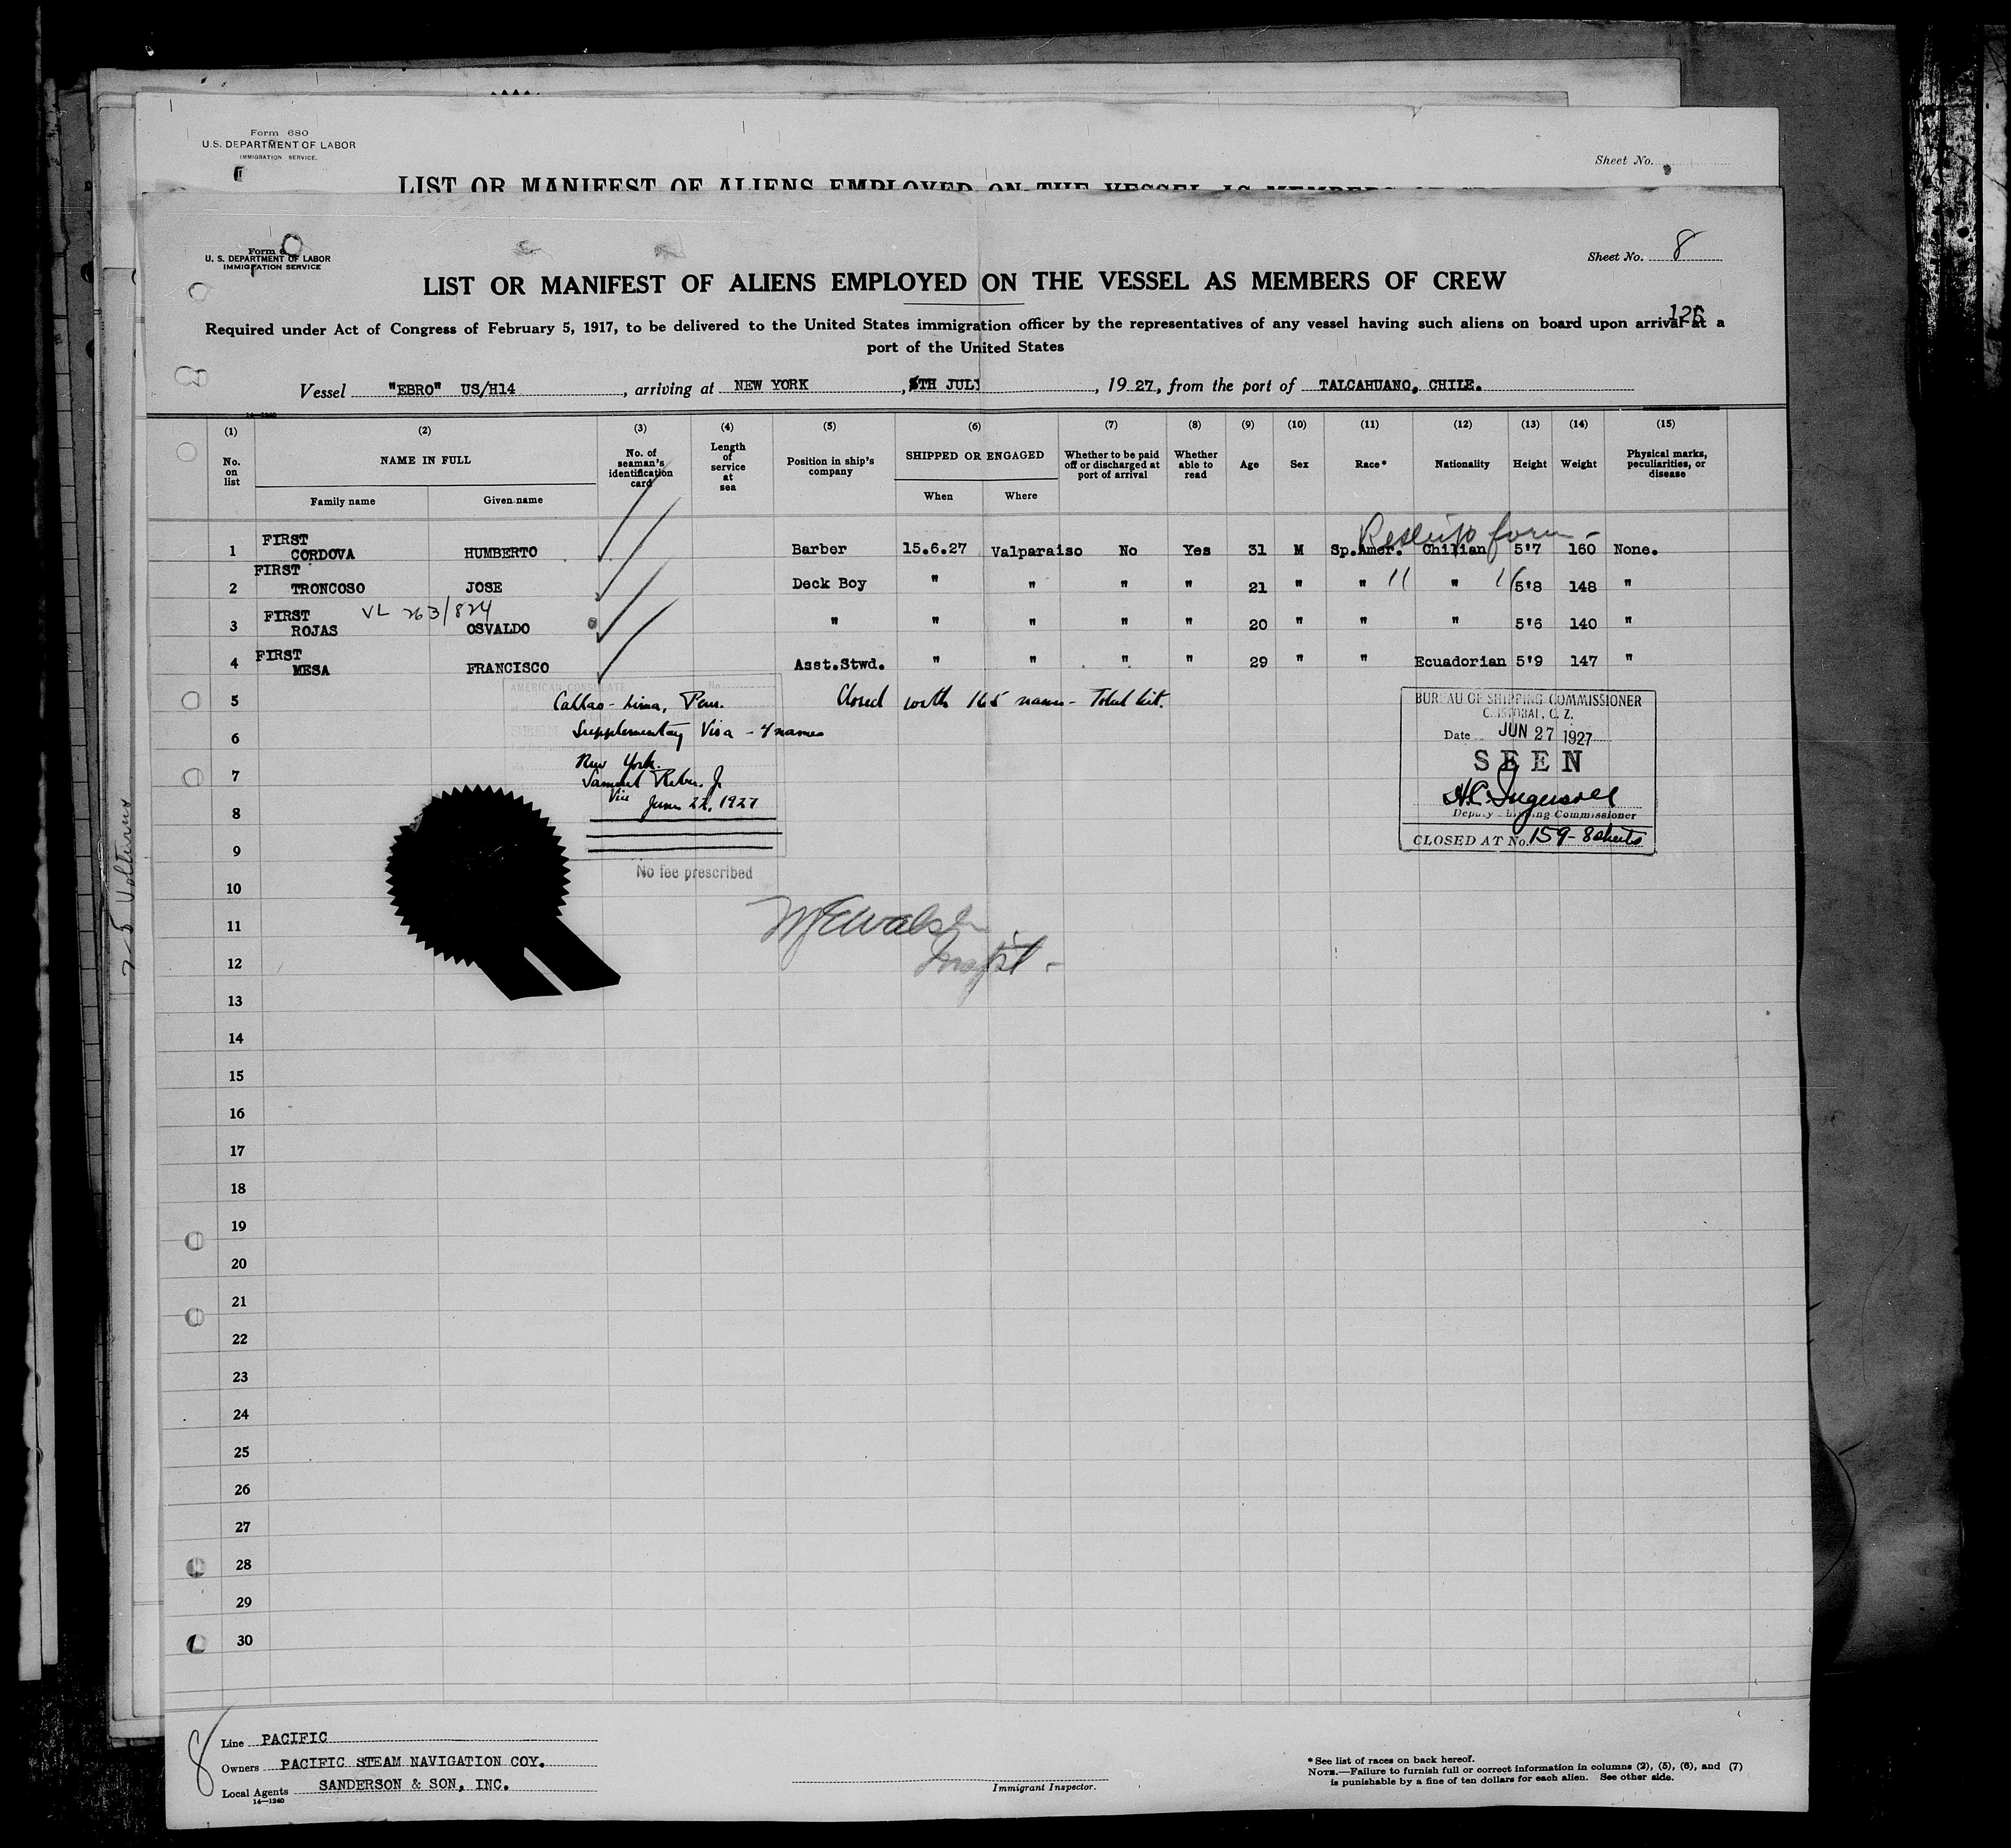 Form 680
U.S. DEPARTMENT OF LABOR
IMMIGRATION SERVICE.
Sheet No.
LIST OR MANIFEST OF ALIENS EMPLOYED ON THE VESSEL AS MEMBERS OF
Form
U. S. DEPARTMENT OF LABOR
IMMIGRATION SERVICE
Sheet No. 8
LIST OR MANIFEST OF ALIENS EMPLOYED ON THE VESSEL AS MEMBERS OF CREW
126
Required under Act of Congress of February 5, 1917, to be delivered to the United States immigration officer by the representatives of any vessel having such aliens on board upon arrival at a
port of the United States
Vessel "EBRO" US/H14, arriving at NEW YORK, 5TH JULY, 1927, from the port of TALCAHUANO, CHILE.
14-1240
(1) (2) (3) (4) (5) (6) (7) (8) (9) (10) (11) (12) (13) (14) (15)
No. on list NAME IN FULL No. of seaman's identification card Length of service at sea Position in ship's company SHIPPED OR ENGAGED Whether to be paid off or discharged at port of arrival Whether able to read Age Sex Race* Nationality Height Weight Physical marks, peculiarities, or disease
Family name Given name When Where
Reship form -
FIRST
1 CORDOVA HUMBERTO Barber 15.6.27 Valparaiso No Yes 31 M Sp.Amer. Chilian 5'7 160 None.
FIRST
2 TRONCOSO JOSE Deck Boy " " " " 21 " " 11 " 11 5'8 148 "
FIRST VL 263/824
3 ROJAS OSVALDO " " " " " 20 " " " 5'6 140 "
FIRST
4 MESA FRANCISCO Asst.Stwd. " " " " 29 " " Ecuadorian 5'9 147 "
AMERICAN CONSULATE No.
5 Callao - Lima, Peru. Closed with 165 names - Total list.
6 Supplementary Visa - 4 names
SEEN
New York.
7 Samuel Reber, Jr.
Vice June 22, 1927
8
9
No fee prescribed
BUREAU OF SHIPPING COMMISSIONER
CRISTOBAL, C. Z.
Date JUN 27 1927
SEEN
H.C. Ingersoll
Deputy Shipping Commissioner
CLOSED AT No. 159 - 8 sheets
10
11
12
13
14
15
16
17
18
19
20
21
22
23
24
25
26
27
28
29
30
8
Line PACIFIC
Owners PACIFIC STEAM NAVIGATION COY.
Local Agents SANDERSON & SON, INC.
14-1240
Immigrant Inspector.
*See list of races on back hereof.
NOTE.—Failure to furnish full or correct information in columns (2), (5), (6), and (7)
is punishable by a fine of ten dollars for each alien. See other side.